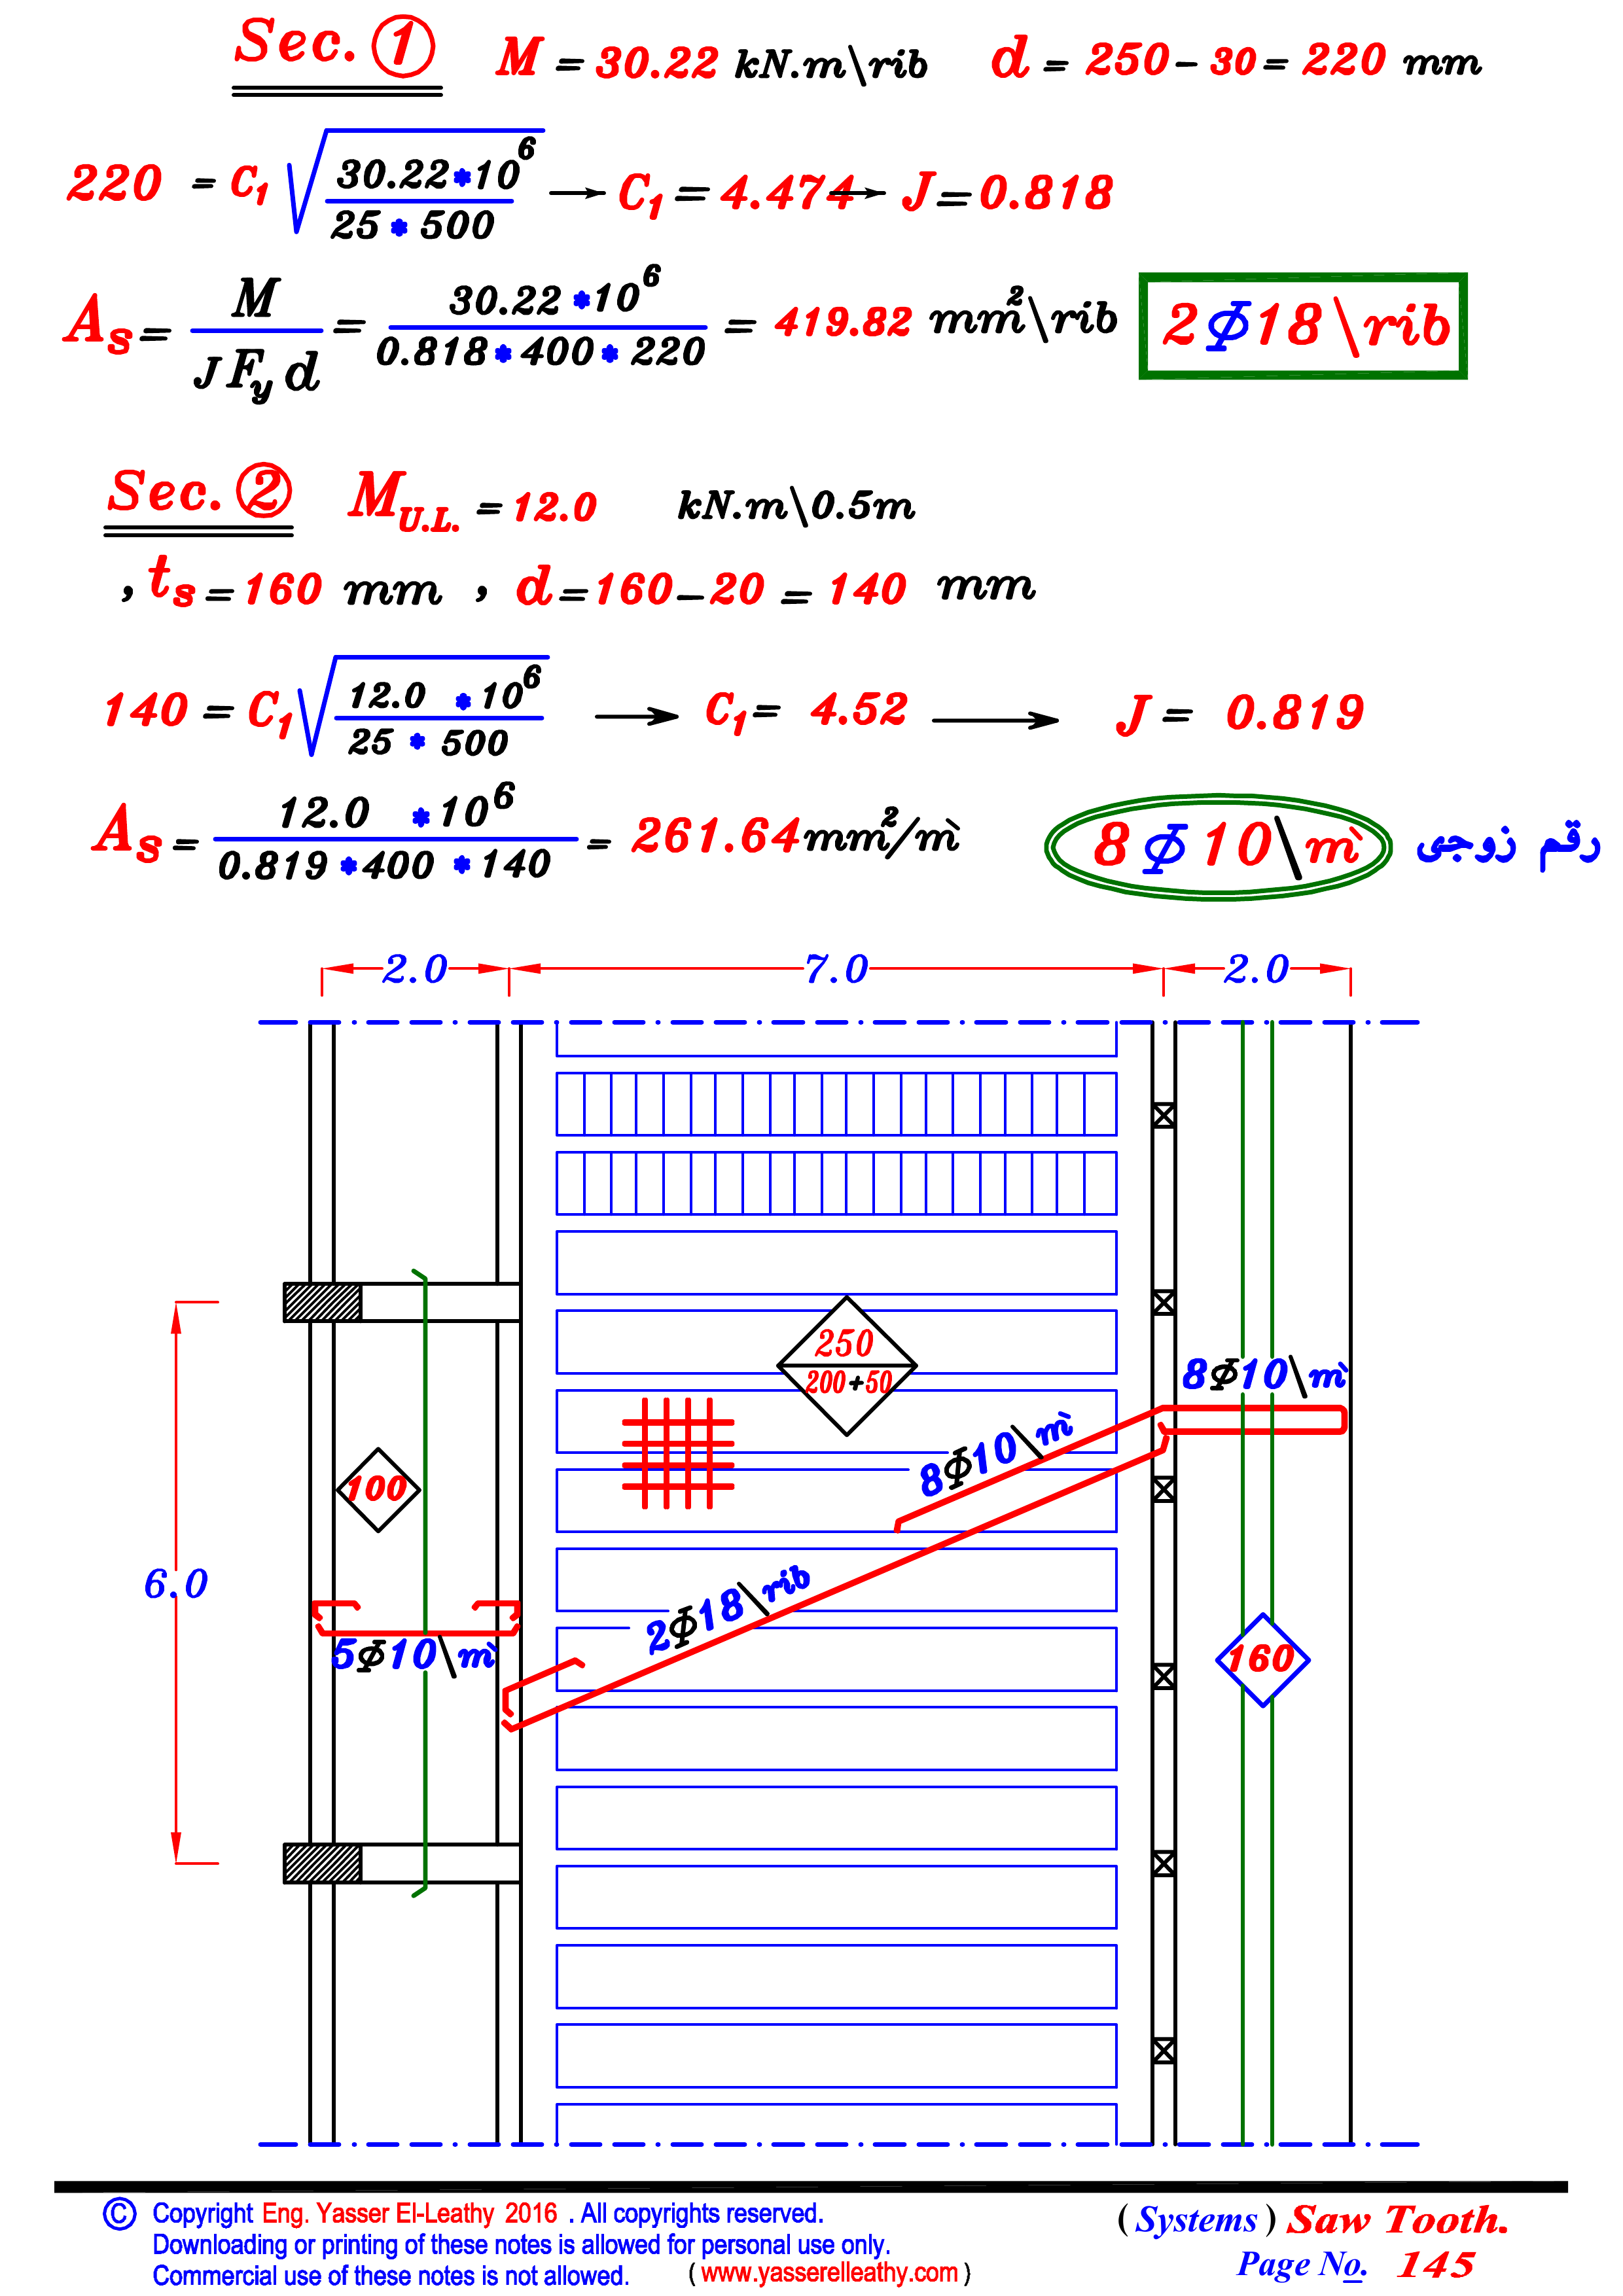 Sec. ① M = 30.22 kN.m\rib d = 250 - 30 = 220 mm
220 = C₁ √(30.22*10⁶ / 25 * 500) → C₁ = 4.474 → J = 0.818
Aₛ = M / J F_y d = 30.22 *10⁶ / 0.818*400*220 = 419.82 mm²\rib 2Φ18\rib
Sec. ② M_U.L. = 12.0 kN.m\0.5m
, tₛ = 160 mm , d = 160-20 = 140 mm
140 = C₁ √(12.0 *10⁶ / 25 * 500) → C₁ = 4.52 → J = 0.819
Aₛ = 12.0 *10⁶ / 0.819*400*140 = 261.64 mm²/m̀ 8Φ10\m̀ رقم زوجى
2.0 7.0 2.0
250
200+50
8Φ10\m̀
8Φ10\m̀
100
6.0
2Φ18\rib
5Φ10\m̀
160
© Copyright Eng. Yasser El-Leathy 2016 . All copyrights reserved.
Downloading or printing of these notes is allowed for personal use only.
Commercial use of these notes is not allowed. ( www.yasserelleathy.com )
( Systems ) Saw Tooth.
Page No. 145